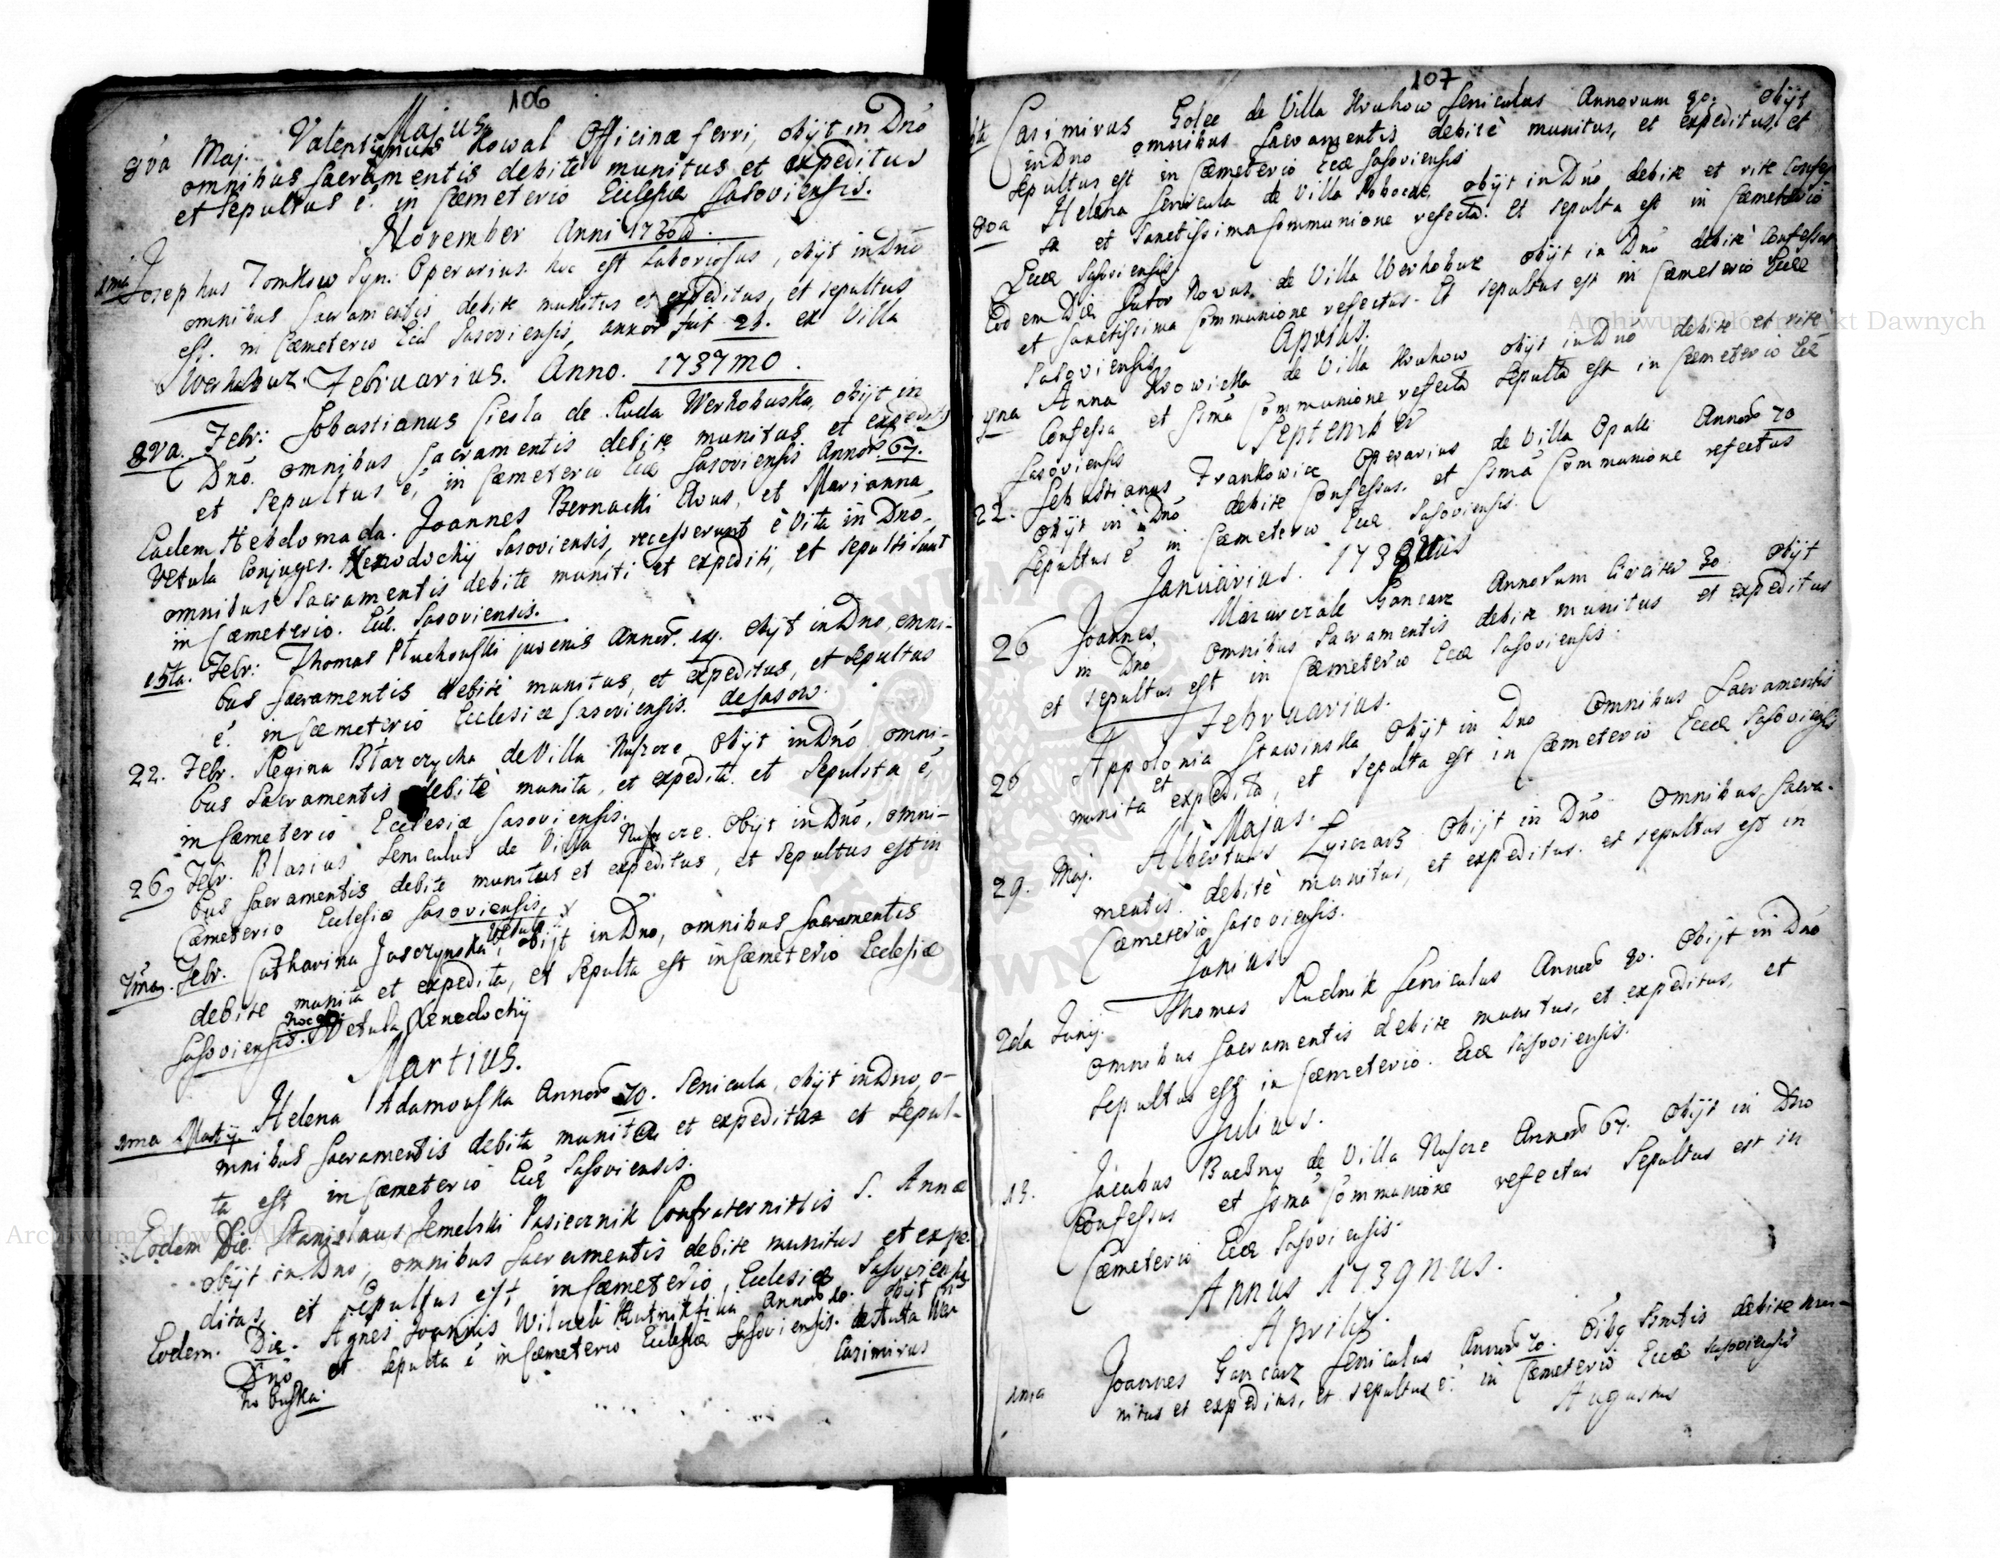 106
Majus
8va Maj. Valentinus Kowal Officinæ ferri, obijt in Dno
omnibus Sacramentis debite munitus et expeditus
et sepultus e. in Cæmeterio Ecclesiæ Sasoviensis.
November Anni 1736
Josephus Tomkow Syn. Operarius. hoc est Laboriosus, obijt in Dno
omnibus Sacramentis debite munitus et expeditus, et sepultus
est. in Cæmeterio Eccl Sasoviensis, annor fuit 21. ex Villa
Werhobuz. Februarius. Anno. 1737mo.
8va. Febr: Sobastianus Ciesla de Ruda Werhobuska, obijt in
Dno. omnibus Sacramentis debite munitus et
et sepultus e, in Cæmeterio Eccæ Sasoviensis Annor. 67.
Eadem Hebdomada. Joannes Bernacki Avus, et Marianna
Vetula Conjuges. Xenodochij Sasoviensis, recesserunt è Vita in Dno,
omnibus Sacramentis debite muniti et expediti, et sepulti sunt
in Cæmeterio. Eccl. Sasoviensis.
15ta. Febr: Thomas Pluchouski juvenis annor. obijt in Dno, omni-
bus Sacramentis debite munitus, et expeditus, et sepultus
é. in Cæmeterio Ecclesiæ Sasoviensis. de Sasow.
22. Febr. Regina de Villa Nuszcze. Obijt in Dnó omni-
bus Sacramentis debitè munita, et expedita. et Sepulta é,
in Cæmeterio Ecclesiæ Sasoviensis.
26 Febr. Blasius Seniculus de Villa Nuszcze. Obijt in Dno, omni-
bus Sacramentis debite munitus et expeditus, et sepultus est in
Cæmeterio Ecclesiæ Sasoviensis.
Febr. Catharina Jasczynska, Vetula obijt in Dno, omnibus Sacramentis
debite munita et expedita, et sepulta est in Cæmeterio Ecclesiæ
Sasoviensis. hoc est Vetula Xenodochij
Martius.
1ma Martij Helena Adamouska Annor 70. Senicula, obijt in Dno, o-
mnibus Sacramentis debite munita et expedita et sepul-
ta est in Cæmeterio Eccl Sasoviensis.
Eodem Die. Stanislaus Jemelski Pasiecznik Confraternitis S. Annæ
obijt in Dno, omnibus Sacramentis debite munitus et expe-
ditus, et sepultus est, in Cæmeterio, Ecclesiæ Sasoviensis
Eodem. Die. Agnes Joannis Annor obijt in
Dno et sepulta é in Cæmeterio Ecclesiæ Sasoviensis. de Ruta Wer
hobuska.
Casimirus
107
Casimirus Golec de Villa Kruhow Seniculus Annorum 80. obijt
in Dno omnibus Sacramentis debitè munitus, et expeditus, et
sepultus est in Cæmeterio Eccæ Sasoviensis
8va Helena Senicula de Villa obijt in Dno debite et rite Confes
sa et Sanctissima Communione refecta. Et sepulta est in Cæmeterio
Eccæ Sasoviensis.
Eodem Die Sutor Novus, de Villa Werhobuz obijt in Dno debitè Confessus
et Sanctissima Communione refectus. Et sepultus est in Cæmeterio Eccæ
Sasoviensis Aprilis.
9na Anna Krowicka de Villa Kruhow obijt in Dno debite et rite
Confessa et Ssma Communione refecta sepulta est in Cæmeterio Eccæ
Sasoviensis September
22. Sebastianus Frankowicz Operarius de Villa Opalki Annor 70
obijt in Dno debite Confessus. et Ssma Communione refectus
sepultus é in Cæmeterio Eccæ Sasoviensis.
Januarius. 1738vus
26 Joannes, Mazurczak Gancarz Annorum Circiter 30 obijt
in Dno omnibus Sacramentis debite munitus et expeditus
et sepultus est in Cæmeterio Eccæ Sasoviensis.
Februarius.
26 Appolonia Stawinska obijt in Dno omnibus Sacramentis
munita et expedita, et sepulta est in Cæmeterio Eccæ Sasoviensis
Majus.
29. Maj. Albertus obijt in Dno omnibus Sacra-
mentis debitè munitus, et expeditus. et sepultus est in
Cæmeterio Sasoviensis.
Junius
2da Junij. Thomas Rudnik Seniculus Annor 80. Obijt in Dno
omnibus Sacramentis debite munitus, et expeditus, et
sepultus est in Cæmeterio. Eccæ Sasoviensis.
Julius.
13. Jacobus de Villa Nuszcze Annor 67. obijt in Dno
Confessus et Ssma Communione refectus Sepultus est in
Cæmeterio Eccæ Sasoviensis.
Annus 1739nus.
Aprilis.
1ma Joannes Gancarz Seniculus Annor 70. debite mu-
nitus et expeditus, et sepultus e: in Cæmeterio Eccæ Sasoviensis
Augustus
Archiwum Główne Akt Dawnych
Archiwum Główne Akt Dawnych